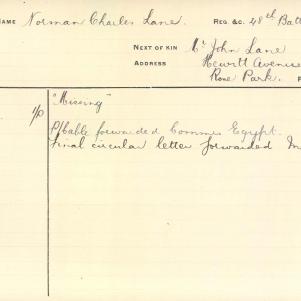 NAME Norman Charles Lane. REG. &C. 48th Batt
NEXT OF KIN Mr John Lane
ADDRESS Hewitt Avenue
Rose Park.
"Missing"
P/Cable forwarded Commes Egypt.
Final circular letter forwarded